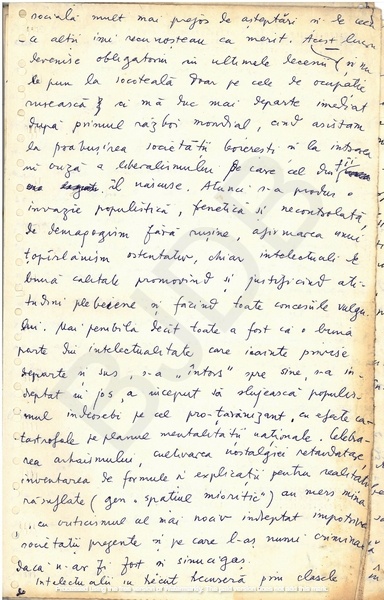 socială mult mai prejos de așteptări și de ceea
ce alții îmi recunoșteau ca merit. Acest lucru
devenise obligatoriu în ultimele decenii și nu
le pun la socoteală doar pe cele de ocupație
rusească și mă duc mai departe imediat
după primul război mondial, cînd asistam
la prăbușirea societății boierești și la intrarea
în criză a liberalismului pe care cel din
îl născuse. Atunci s-a produs o
invazie populistică, frenetică și necontrolată,
de demagogism fără rușine, afirmarea unui
țopîrlănism ostentativ, chiar intelectuali de
bună calitate promovînd și justificînd ati-
tudini plebeiene și făcînd toate concesiile vulgu-
lui. Mai penibilă decît toate a fost că o bună
parte din intelectualitate care înainte privise
departe și sus, s-a "întors" spre sine, s-a în-
dreptat în jos, a început să slujească populis-
mul îndeosebi pe cel pro-țărănizant, cu efecte ca-
tastrofale pe planul mentalității naționale. Celebra-
rea arhaismului, cultivarea nostalgiei retardatare
inventarea de formule și explicații pentru realități
răsuflate (gen "spațiul mioritic") au mers mînă
cu criticismul cel mai nociv îndreptat împotriva
societății prezente și pe care l-aș numi criminal
dacă n-ar fi fost și sinucigaș.
Intelectualii în trecut
prin clasele
BUDIB